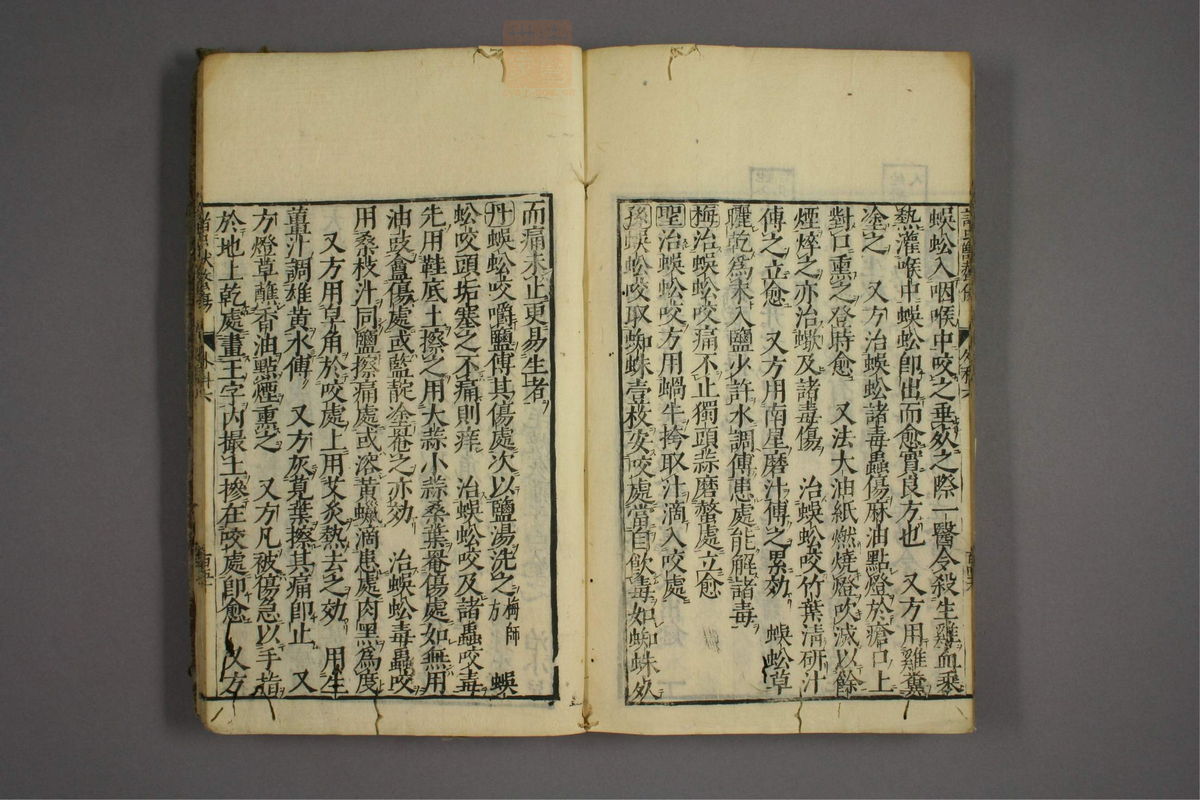 蜈蚣入咽喉中咬之垂死之際一醫令殺生雞血乘
熱灌喉中蜈蚣即出而愈實良方也　又方用雞糞
塗之　又方治蜈蚣諸毒蟲傷麻油點燈於瘡口上
對口熏之登時愈　又法大油紙燃燒燈吹滅以餘
煙焠之亦治蠍及諸毒傷　治蜈蚣咬竹葉清研汁
傅之立愈　又方用南星磨汁傅之累効　蜈蚣草
曬乾為末入鹽少許水調傅患處能解諸毒
梅治蜈蚣咬痛不止獨頭蒜磨螫處立愈
聖治蜈蚣咬方用蝸牛挎取汁滴入咬處
孫蜈蚣咬取蜘蛛壹枚安咬處當自飲毒如蜘蛛死
而痛未止更易生者
丹蜈蚣咬嚼鹽傅其傷處次以鹽湯洗之梅師方　蜈
蚣咬頭垢塞之不痛則痒　治蜈蚣咬及諸蟲咬毒
先用鞋底土擦之用大蒜小蒜桑葉罨傷處如無用
油豉盦傷處或藍靛塗罨之亦効　治蜈蚣毒蟲咬
用桑枝汁同鹽擦痛處或溶黃蠟滴患處肉黑為度
又方用皂角於咬處上用艾灸熱去之効　用生
薑汁調雄黃水傅　又方灰莧葉擦其痛即止　又
方燈草蘸香油點煙熏之　又方凡被傷急以手指
於地上乾處畫王字內撮土摻在咬處即愈　又方